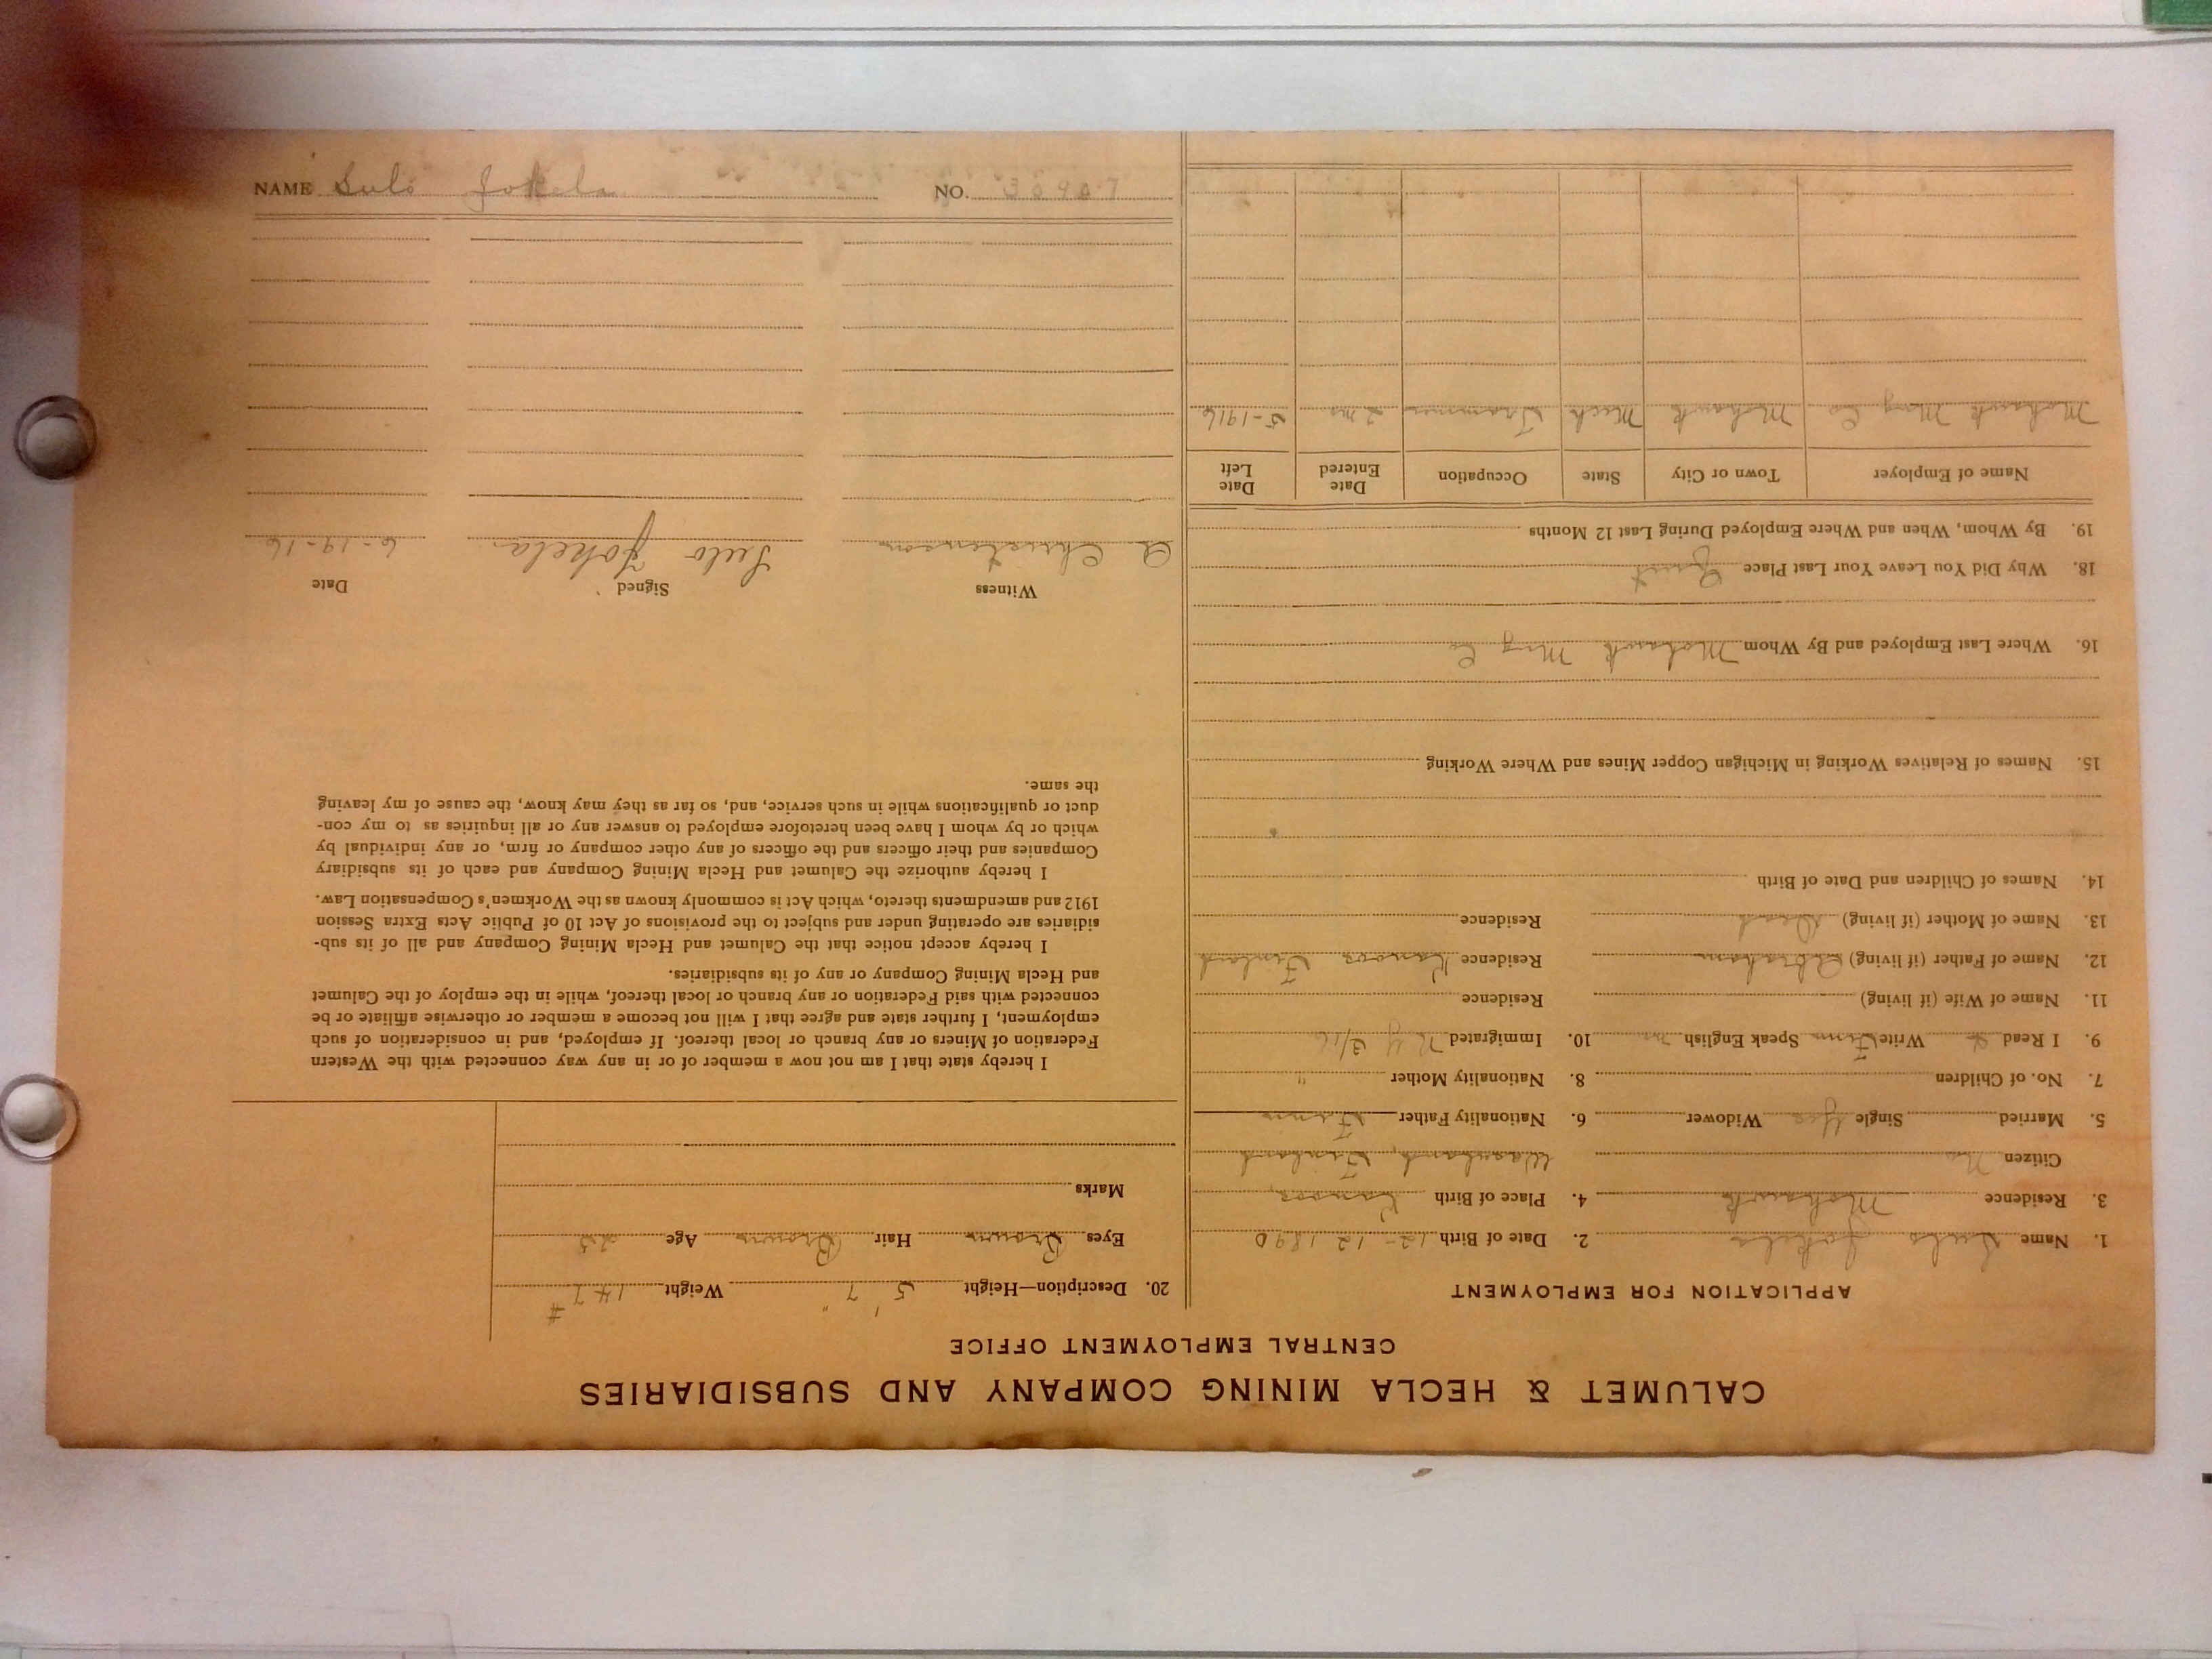 CALUMET & HECLA MINING COMPANY AND SUBSIDIARIES
CENTRAL EMPLOYMENT OFFICE
APPLICATION FOR EMPLOYMENT
1. Name Sulo Jokela 2. Date of Birth 12-12 1890
3. Residence Mohawk 4. Place of Birth
Citizen No Finland
5. Married Single Yes Widower 6. Nationality Father Finn
7. No. of Children 8. Nationality Mother "
9. I Read Write Finn Speak English no 10. Immigrated N Y 3/16
11. Name of Wife (if living) Residence
12. Name of Father (if living) Abraham Residence Finland
13. Name of Mother (if living) Dead Residence
14. Names of Children and Date of Birth
15. Names of Relatives Working in Michigan Copper Mines and Where Working
16. Where Last Employed and By Whom Mohawk Mng Co
18. Why Did You Leave Your Last Place Quit
19. By Whom, When and Where Employed During Last 12 Months
Name of Employer Town or City State Occupation Date Entered Date Left
Mohawk Mng Co Mohawk Mich Trammer 2 mo 5-1916
20. Description—Height 5' 7" Weight 147 #
Eyes Brown Hair Brown Age 25
Marks
I hereby state that I am not now a member of or in any way connected with the Western
Federation of Miners or any branch or local thereof. If employed, and in consideration of such
employment, I further state and agree that I will not become a member or otherwise affiliate or be
connected with said Federation or any branch or local thereof, while in the employ of the Calumet
and Hecla Mining Company or any of its subsidiaries.
I hereby accept notice that the Calumet and Hecla Mining Company and all of its sub-
sidiaries are operating under and subject to the provisions of Act 10 of Public Acts Extra Session
1912 and amendments thereto, which Act is commonly known as the Workmen's Compensation Law.
I hereby authorize the Calumet and Hecla Mining Company and each of its subsidiary
Companies and their officers and the officers of any other company or firm, or any individual by
which or by whom I have been heretofore employed to answer any or all inquiries as to my con-
duct or qualifications while in such service, and, so far as they may know, the cause of my leaving
the same.
Witness Signed Date
A Christenson Sulo Jokela 6-19-16
NAME Sulo Jokela NO. 30907